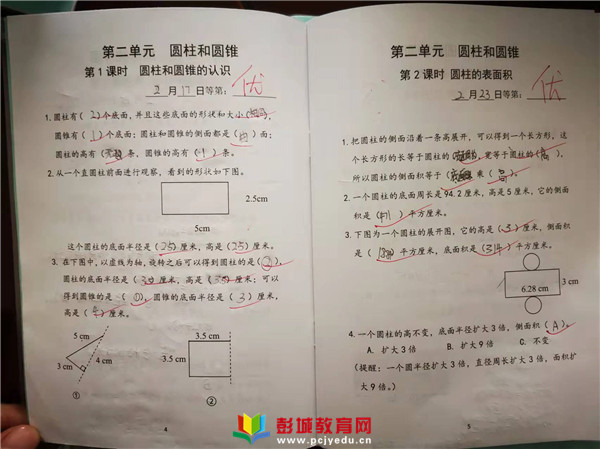 第二单元 圆柱和圆锥
第1课时 圆柱和圆锥的认识
2 月 17 日等第: 优
1.圆柱有( 2 )个底面,并且这些底面的形状和大小(相同),
圆锥有( 1 )个底面;圆柱和圆锥的侧面都是(曲)面;
圆柱的高有(无数)条,圆锥的高有( 1 )条。
2.从一个直圆柱前面进行观察,看到的形状如下图。
2.5cm
5cm
这个圆柱的底面半径是(2.5)厘米,高是(2.5)厘米。
3.在下图中,以虚线为轴,旋转之后可以得到圆柱的是(②),
圆柱的底面半径是(3.5)厘米,高是(3.5)厘米;可以
得到圆锥的是(①),圆锥的底面半径是( 3 )厘米,
高是( 4 )厘米。
5 cm
3 cm
4 cm
①
3.5 cm
3.5 cm
②
4
第二单元 圆柱和圆锥
第2课时 圆柱的表面积
2 月 23 日等第: 优
1.把圆柱的侧面沿着一条高展开,可以得到一个长方形,这
个长方形的长等于圆柱的( ),宽等于圆柱的(高),
所以圆柱的侧面积等于( )乘(高)。
2.一个圆柱的底面周长是94.2厘米,高是5厘米,它的侧面
积是(471)平方厘米。
3.下图为一个圆柱的展开图,它的高是( 3 )厘米,侧面积
是( )平方厘米,底面积是(3.14)平方厘米。
6.28 cm
3 cm
4.一个圆柱的高不变,底面半径扩大3倍,侧面积( A )。
A. 扩大3倍 B. 扩大9倍 C. 不变
(提醒:一个圆半径扩大3倍,直径周长扩大3倍,面积扩
大9倍。)
5
彭城教育网
www.pcjyedu.cn